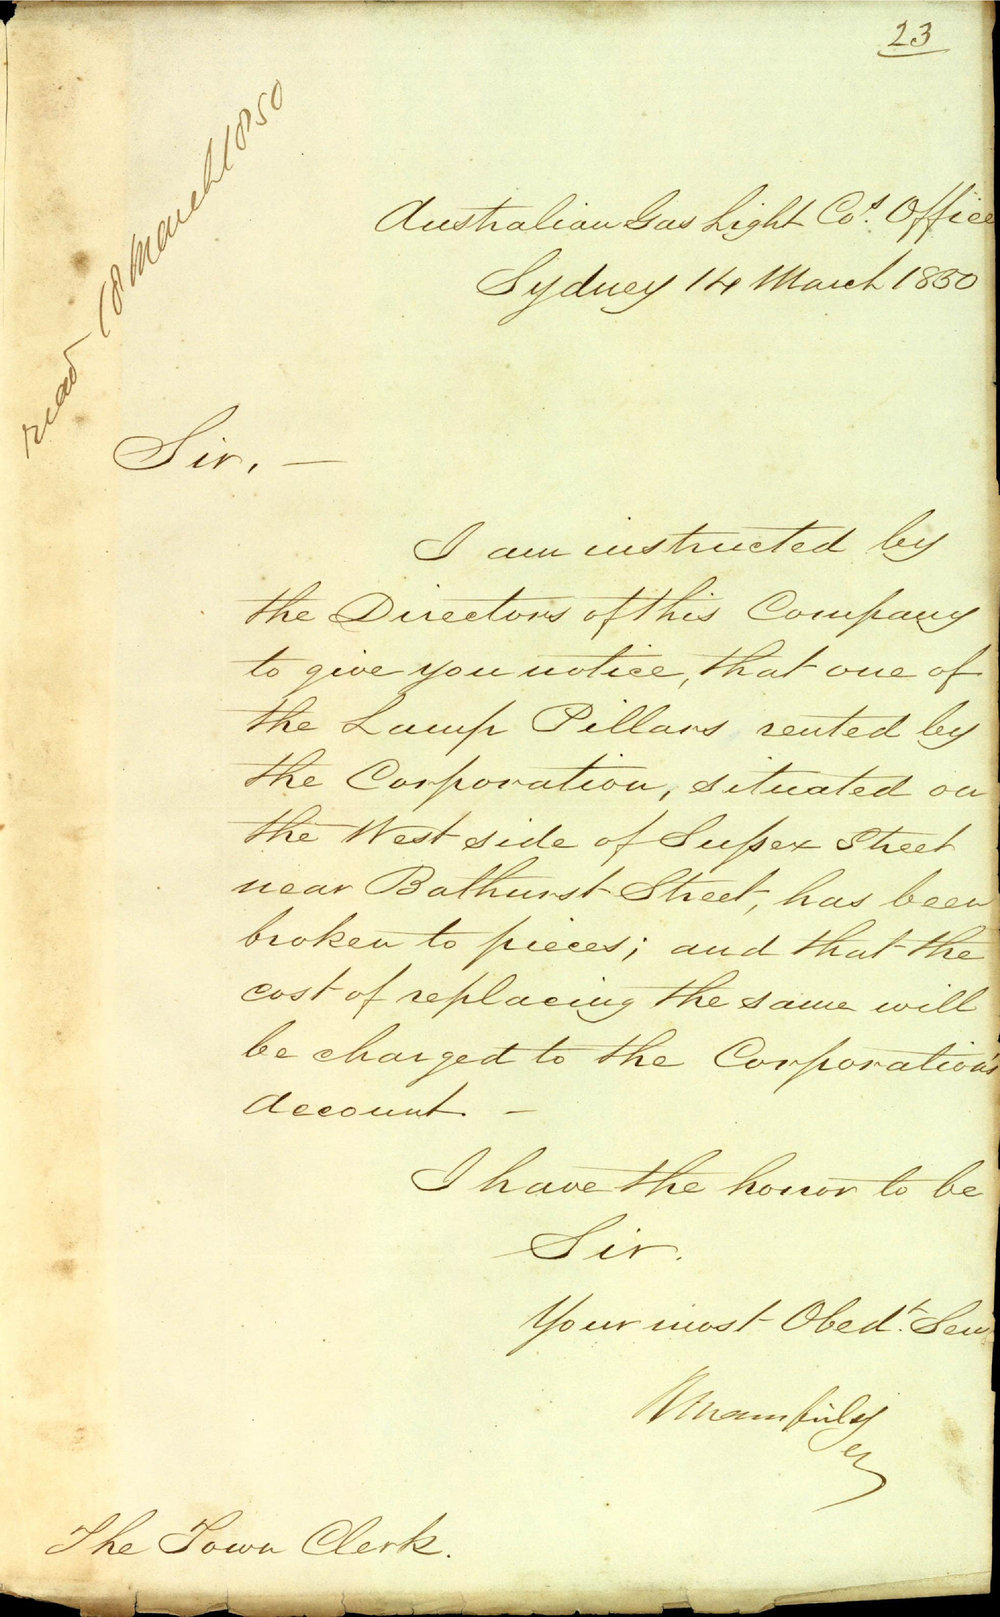 23
read 18 March 1850
Australian Gas Light Cos. Office
Sydney 14 March 1850
Sir, —
I am instructed by
the Directors of this Company
to give you notice, that one of
the Lamp Pillars rented by
the Corporation, situated on
the West side of Sussex Street
near Bathurst Street, has been
broken to pieces; and that the
cost of replacing the same will
be charged to the Corporation's
Account. —
I have the honor to be
Sir.
Your most Obedt. Serv
The Town Clerk.